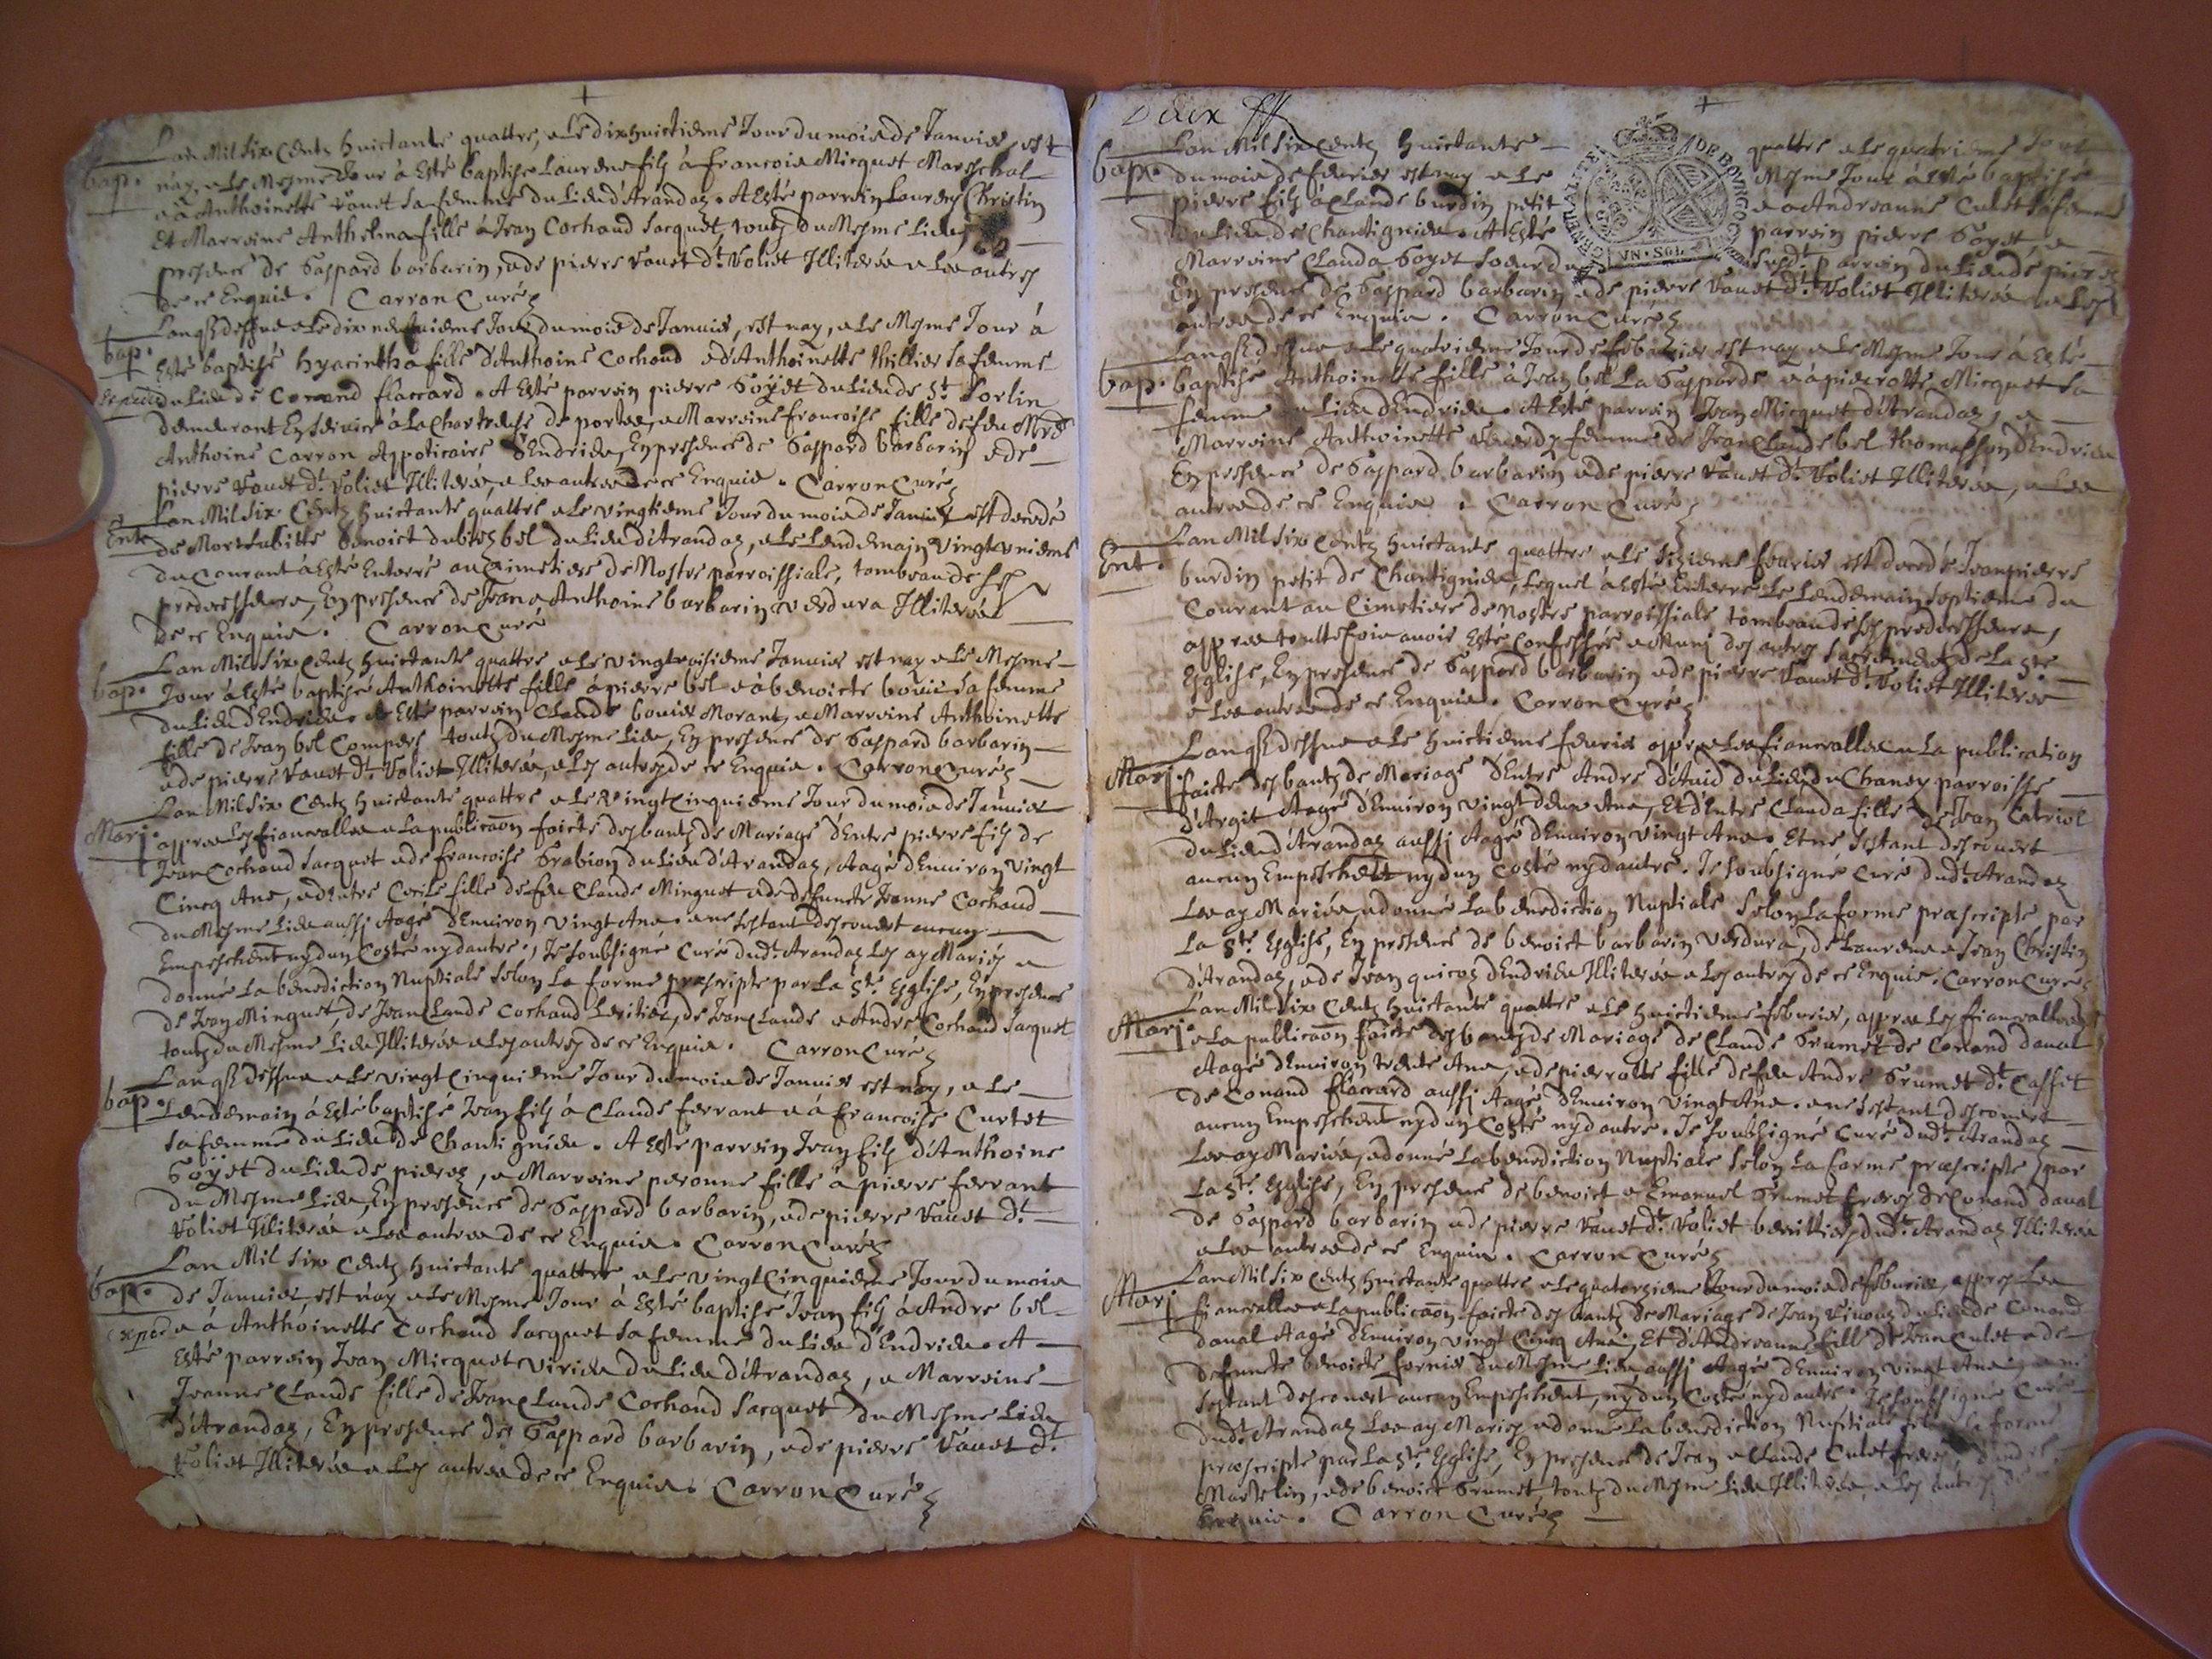 Lan Mil Six Centz huictante quattre, & le dixhuictieme Jour du mois de Janvier, est
bap. nay, & le Mesme Jour à Esté baptisé Laurens filz à francois Micquet Mareschal
& à Anthoinette Vauet sa femme du Lieu d'Arandaz. A Esté parrein Laurens Christin
Et Marreine Anthelma fille à Jean Cochaud Jacquet, touts du Mesme Lieu,
presence de Gaspard barbarin, & de pierre Vauet dt. Voliet Illiterés & les autres
de ce Enquis. Carron Curé
Lan q. dessus & le dix neufuieme Jour du mois de Janvier, est nay, & le Mesme Jour à
bap. Esté baptisé hyacintha fille d'Anthoine Cochaud & d'Anthoinette thillier sa femme
Expedié du Lieu de Conand flaccard. A Esté parrein pierre Goÿet du Lieu de St. Sorlin
demeurant En service à la Chartreuse de portes, & Marreine francoise fille de feu Mre
Anthoine Carron Appoticaire d'Endrieu, En presence de Gaspard barbarin & de
pierre Vauet dt. Voliet Illiterés, & les autres de ce Enquis. Carron Curé
Lan Mil Six Centz huictante quattre & le vingtieme Jour du mois de Janvier est decedé
Ent. de Mort subitte Benoict dubiez bel du Lieu d'Arandaz, & le Lendemain vingt unieme
du Courant à Esté Enterré au Cimetiere de Nostre parroissiale, tombeau de ses
predecesseurs, En presence de Jean & Anthoine barbarin Verdura Illiterés
de ce Enquis. Carron Curé
Lan Mil Six Centz huictante quattre & le vingt troisieme Janvier est nay & le Mesme
bap. Jour à Esté baptisé Anthoinette fille à pierre bel & à benoicte bouier sa femme
du Lieu d'Endrieu. A Esté parrein Claude bouier Morant, & Marreine Anthoinette
fille de Jean bel Compere touts du Mesme Lieu, En presence de Gaspard barbarin
& de pierre Vauet dt. Voliet Illiterés, & les autres de ce Enquis. Carron Curé
Lan Mil Six Centz huictante quattre & le Vingt Cinquieme Jour du mois de Janvier
Mari. apres les fiancailles & la publicaõn faicte des bants de Mariage d'Entre pierre filz de
Jean Cochaud Jacquet & de francoise Grabion du Lieu d'Arandaz, Aagé d'Environ Vingt
Cincq Ans, & d'Entre Cecile fille de feu Claude Minguet & de deffuncte Jeanne Cochaud
du Mesme Lieu aussi Aagé d'Environ Vingt Ans. & ne sestant descouvert aucun
Empeschent ny dun Costé ny dautre, Je soubsigné Curé dudt. Arandaz les ay Mariés &
donné la benediction Nuptiale selon la forme præscripte par la Ste. Esglise, En presence
de Jean Minguet, de Jean Claude Cochaud Levitier, de Jean Claude & André Cochaud Jacquet
touts du Mesme Lieu Illiterés & les autres de ce Enquis. Carron Curé
Lan q. dessus & le vingt Cinquieme Jour du mois de Janvier est nay, & le
bap. Lendemain à Esté baptisé Jean filz à Claude ferrant & à francoise Curtet
sa femme du Lieu de Chantignieu. A Esté parrein Jean filz d'Anthoine
Goÿet du Lieu de pierez, & Marreine peronne fille à pierre ferrant
du Mesme Lieu, En presence de Gaspard barbarin, & de pierre Vauet dt.
Voliet Illiterés & les autres de ce Enquis. Carron Curé
Lan Mil Six Centz huictante quattre, & le vingt Cinquieme Jour du mois
bap. de Janvier, est nay & le Mesme Jour à Esté baptisé Jean filz à André bel
Expedié & à Anthoinette Cochaud Jacquet sa femme du Lieu d'Endrieu. A
Esté parrein Jean Micquet Virieu du Lieu d'Arandaz, & Marreine
Jeanne Claude fille de Jean Claude Cochaud Jacquet du Mesme Lieu
d'Arandaz, En presence de Gaspard barbarin, & de pierre Vauet dt.
Voliet Illiterés & les autres de ce Enquis. Carron Curé
Deux
GENERALITE DE BOVRGO
VN · SOL
Lan Mil Six Centz huictante quattre & le quatrieme Jour
bap. du mois de fevrier est nay & le Mesme Jour à Esté baptisé
pierre filz à Claude burdin petit & à Andreanne Culet sa femme
du Lieu de Chantignieu. A Esté parrein pierre Goyet, &
Marreine Clauda Goyet soeur du susdt. parrein du Lieu de pierez
En presence de Gaspard barbarin & de pierre Vauet dt. Voliet Illiterés & les
autres de ce Enquis. Carron Curé
Lan q. dessus & le quatrieme Jour de febvrier est nay & le Mesme Jour à Esté
bap. baptisé Anthoinette fille à Jean bel La Gasparde & à pierrotte Micquet sa
femme du Lieu d'Endrieu. A Esté parrein Jean Micquet d'Arandaz, &
Marreine Anthoinette femme de Jean Claude bel thomasson d'Endrieu
En presence de Gaspard barbarin & de pierre Vauet dt. Voliet Illiterés, & les
autres de ce Enquis. Carron Curé
Lan Mil Six Centz huictante quattre & le sizieme fevrier est decedé Jean pierre
Ent. burdin petit de Chantignieu, Lequel à Esté Enterré le Lendemain septieme du
Courant au Cimetiere de nostre parroissiale tombeau de ses predecesseurs,
appres touttefois avoir Esté Confessé & Muni des autres sacrements de la Ste.
Esglise, En presence de Gaspard barbarin & de pierre Vauet dt. Voliet Illiterés
& les autres de ce Enquis. Carron Curé
Lan q. dessus & le huictieme fevrier appres les fiancailles & la publication
Mari. faicte des bants de Mariage d'Entre André d'Avid du Lieu du Chaney parroisse
d'Argit Aagé d'Environ vingt deux Ans, Et d'Entre Clauda fille de Jean Catriol
du Lieu d'Arandaz aussi Aagé d'Environ vingt Ans. Et ne sestant descouvert
aucun Empeschent ny dun Costé ny dautre. Je soubsigné Curé dudt. Arandaz
Les ay Mariés, & donné la benediction Nuptiale selon la forme præscripte par
La Ste. Esglise, En presence de benoict barbarin Verdura, de Laurens & Jean Christin
d'Arandaz, & de Jean quicoz d'Endrieu Illiterés & les autres de ce Enquis. Carron Curé
Lan Mil Six Centz huictante quattre & le huictieme febvrier, appres les fiancailles
Mari. & la publicaõn faicte des bants de Mariage de Claude Grumet de Conand daval
Aagé d'Environ trente Ans, & de pierrotte fille de feu André Grumet dt. Casset
de Conand flaccard aussi Aagé d'Environ Vingt Ans. & ne sestant descouvert
aucun Empeschent ny dun Costé ny dautre. Je soubsigné Curé dudt. Arandaz
Les ay Mariés, & donné la benediction Nuptiale selon la forme præscripte par
La Ste. Esglise, En presence de benoict & Emanuel Grumet freres de Conand daval
de Gaspard barbarin & de pierre Vauet dt. Voliet dudt. Arandaz Illiterés
& les autres de ce Enquis. Carron Curé
Lan Mil Six Centz huictante quattre & le quatorzieme Jour du mois de febvrier, appres les
Mari. fiancailles & la publicaõn faicte des bants de Mariage de Jean du Lieu de Conand
daval Aagé d'Environ vingt Cincq Ans, Et d'Andreanne fille de Jean Culet & de
deffuncte benoicte fornier du Mesme Lieu aussi Aagée d'Environ Vingt Ans, & ne
sestant descouvert aucun Empeschent, ny dun Costé ny dautre. Je soubsigné Curé
dudt. Arandaz Les ay Mariés & donné la benediction Nuptiale selon la forme
præscripte par La Ste. Esglise, En presence de Jean & Claude Culet freres, d'André
Martelin, & de benoict Grumet touts du Mesme Lieu Illiterés, & les autres de ce
Enquis. Carron Curé